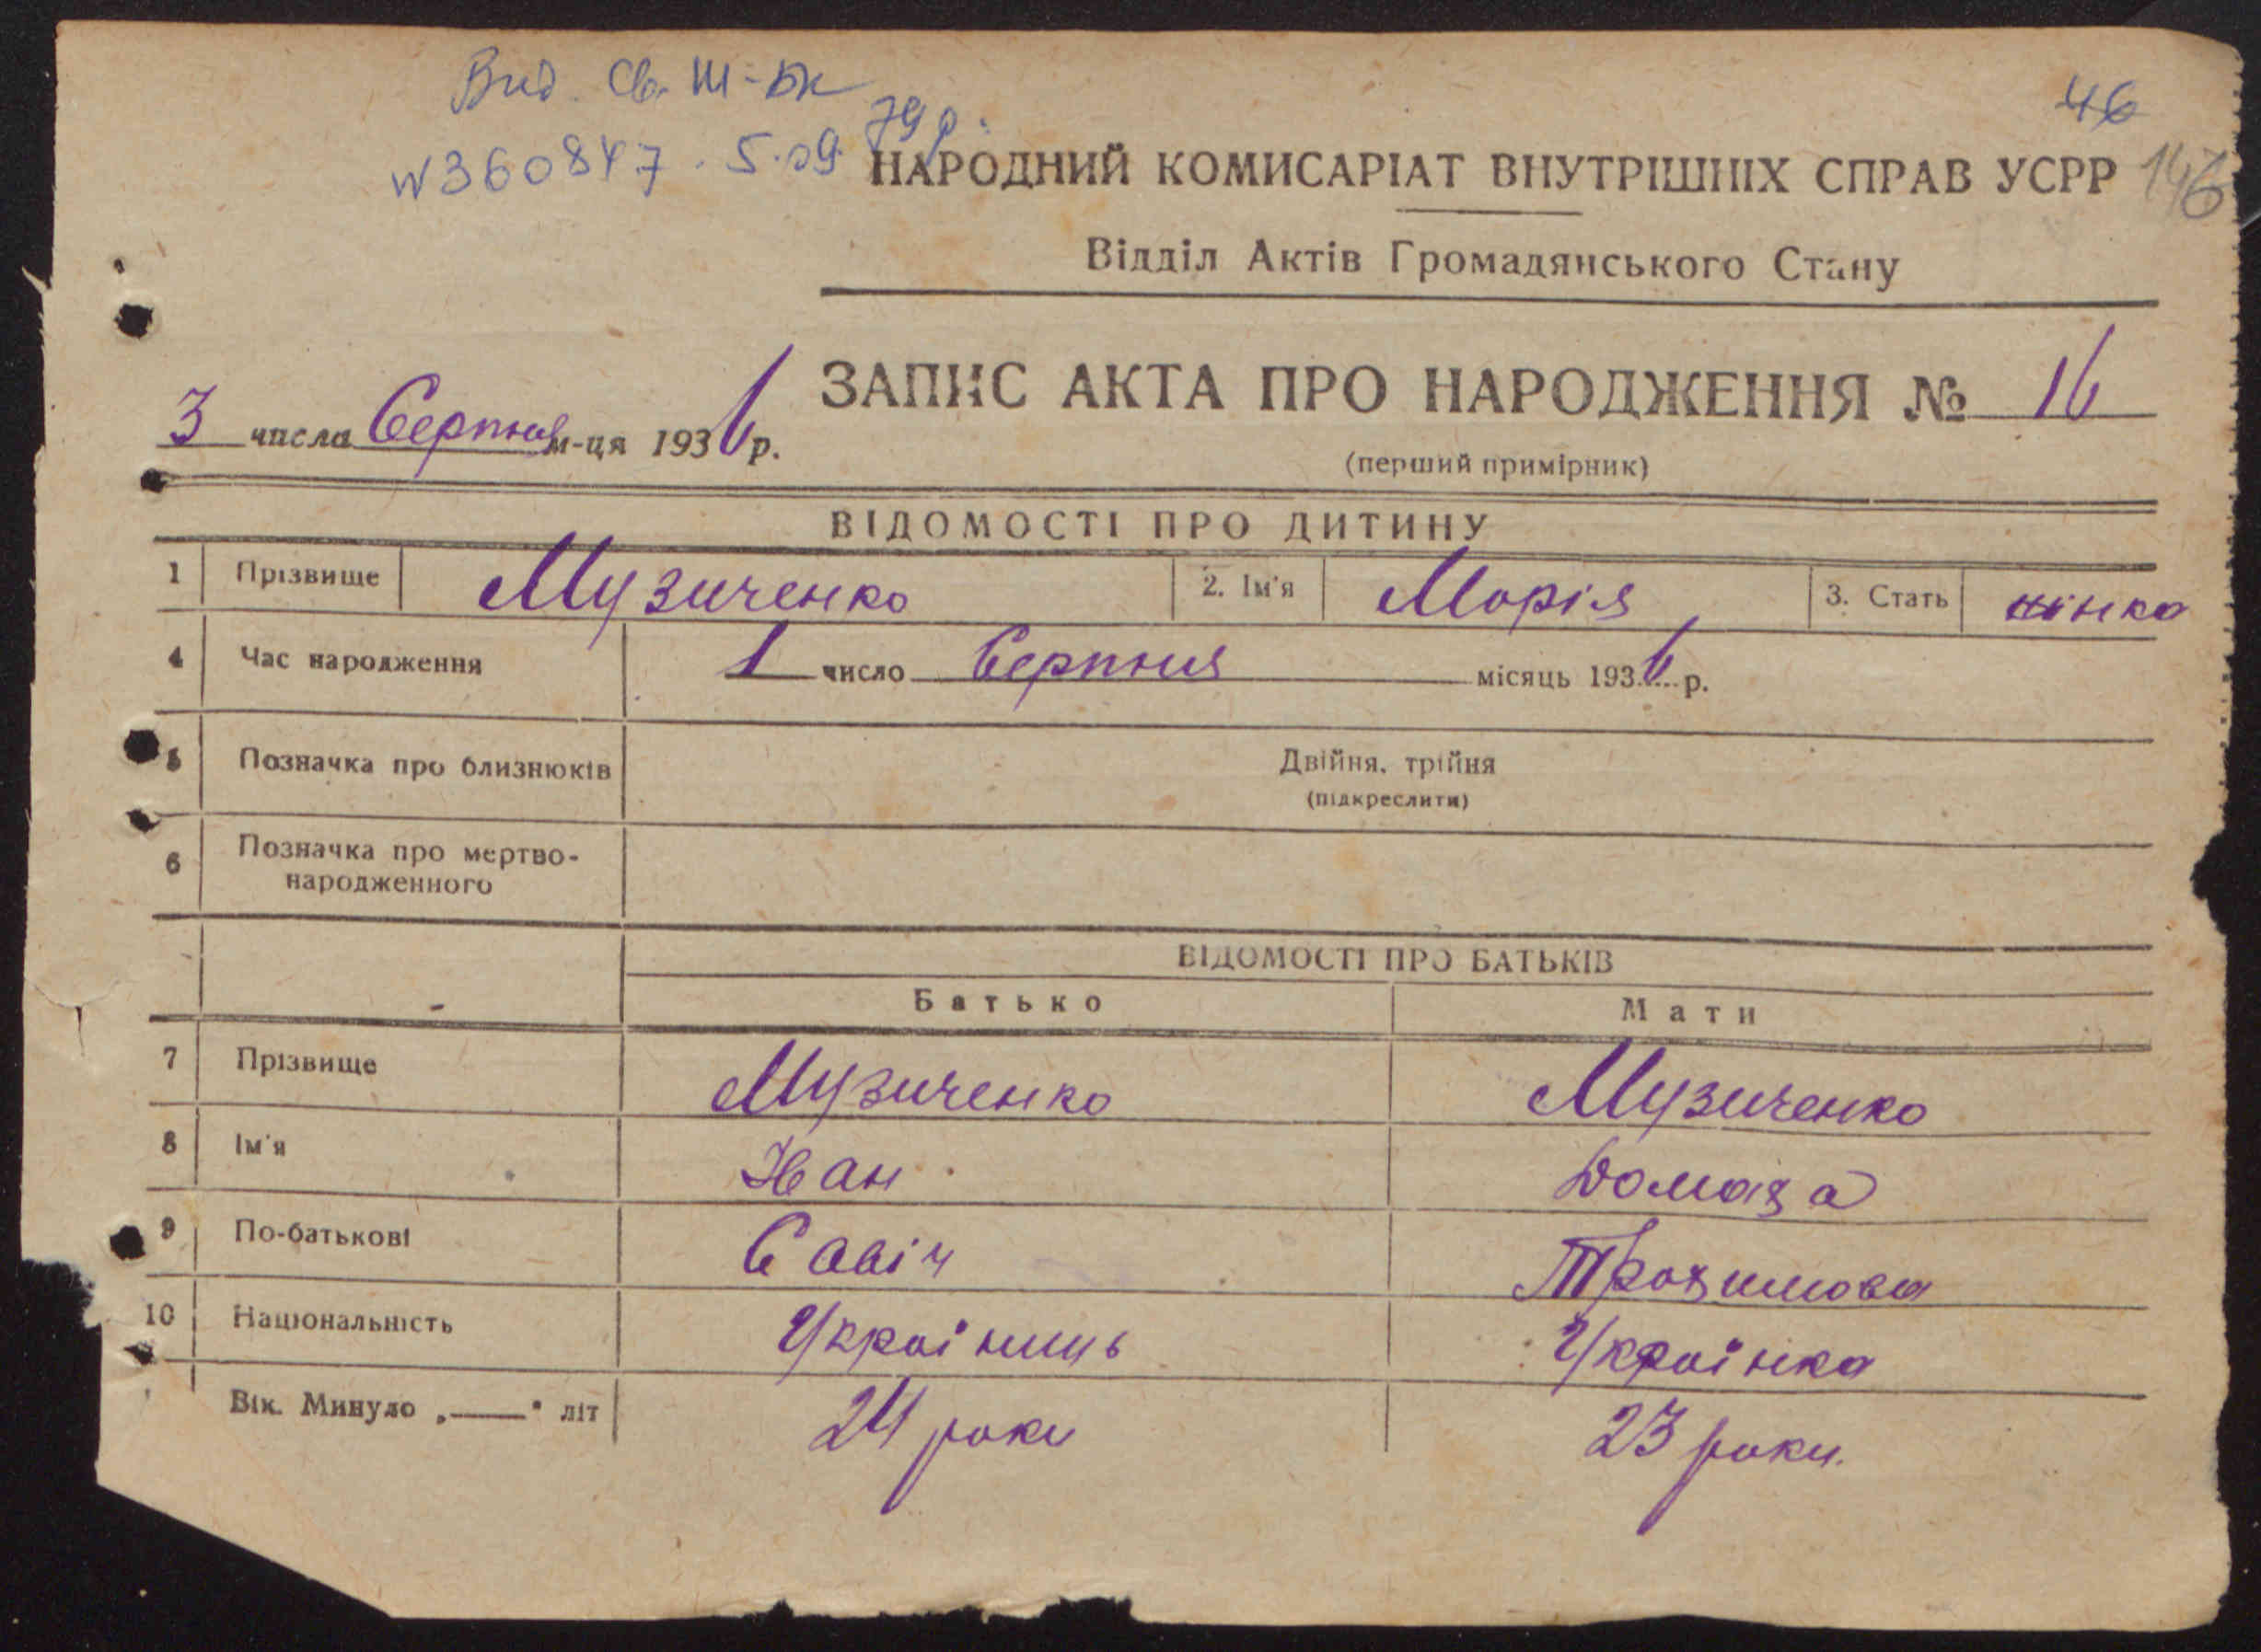 Вид. Св. III-БК
№360847. 5.09.79р.
46
146
НАРОДНИЙ КОМИСАРІАТ ВНУТРІШНІХ СПРАВ УСРР
Відділ Актів Громадянського Стану
ЗАПИС АКТА ПРО НАРОДЖЕННЯ № 16
3 числа Серпня м-ця 1936 р.
(перший примірник)
ВІДОМОСТІ ПРО ДИТИНУ
1 Прізвище Музиченко 2. Ім'я Марія 3. Стать жінка
4 Час народження 1 число Серпня місяць 1936 р.
5 Позначка про близнюків Двійня, трійня
(підкреслити)
6 Позначка про мертво-
народженного
ВІДОМОСТІ ПРО БАТЬКІВ
Батько Мати
7 Прізвище Музиченко Музиченко
8 Ім'я Іван Домаха
9 По-батькові Савіч Трохимова
10 Національність Українець Українка
Вік. Минуло „——" літ 24 роки 23 роки.